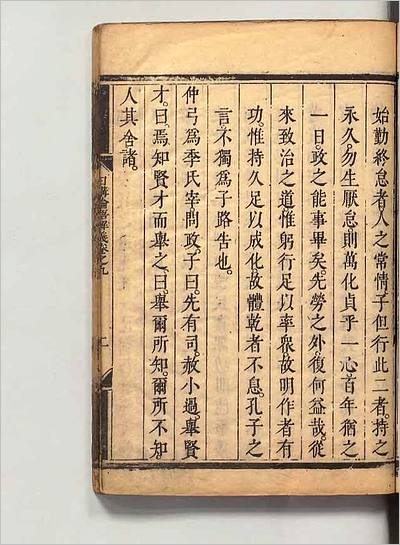 始勤終怠者人之常情子但行此二者。持之
永久。勿生厭怠則萬化貞乎一心百年猶之
一日。政之能事畢矣。先勞之外。復何益哉。從
來致治之道惟躬行足以率衆。故明作者有
功。惟持久足以成化。故體乾者不息。孔子之
言不獨爲子路告也。
仲弓爲季氏宰問政。子曰。先有司。赦小過。舉賢
才。曰。焉知賢才而舉之。曰。舉爾所知。爾所不知。
人其舍諸。
日講論語解義卷之九